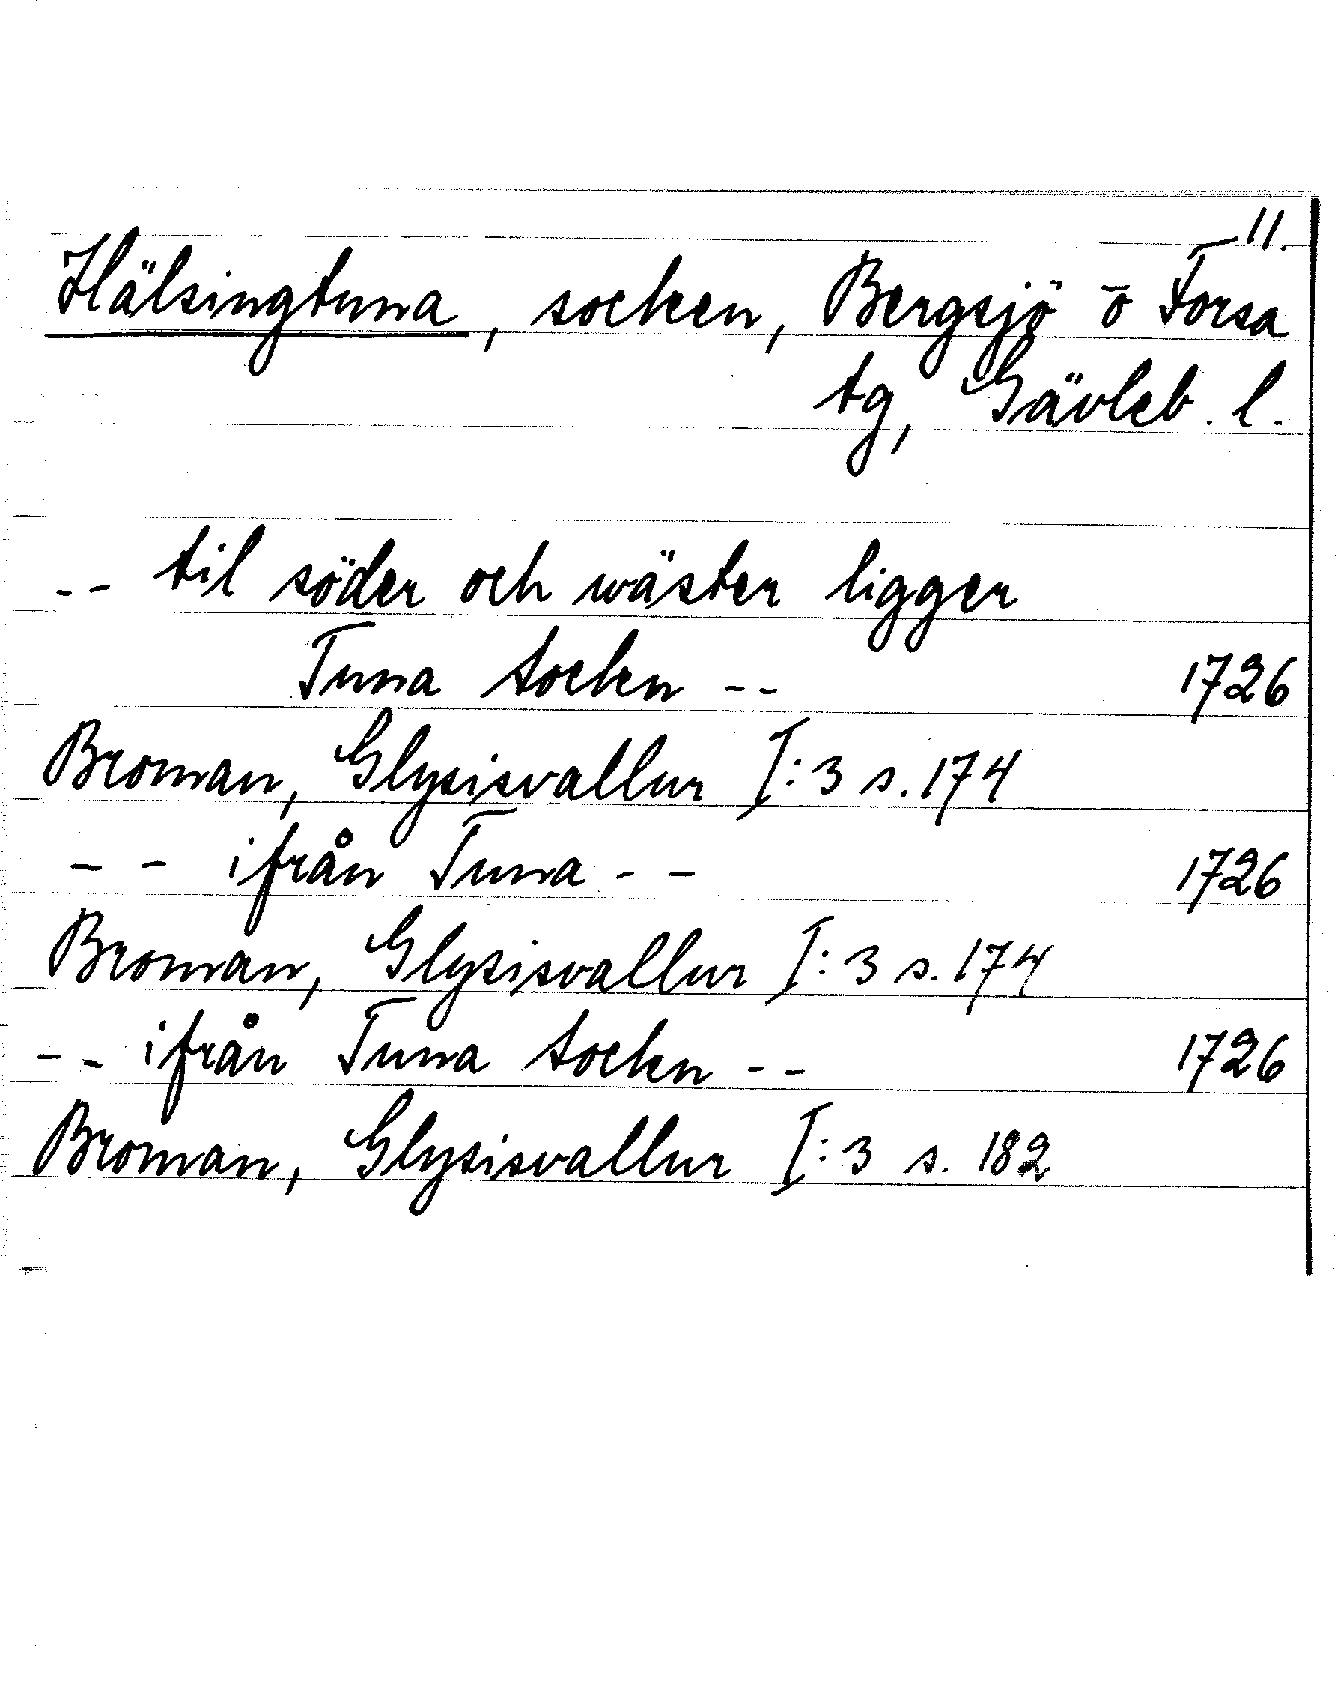 11.
Hälsingtuna, socken, Bergsjö o Forsa
tg, Gävleb. l.
-- til söder och wäster ligger
Tuna Sockn -- 1726
Broman, Glysisvallur I:3 s. 174
-- ifrån Tuna -- 1726
Broman, Glysisvallur I:3 s. 174
-- ifrån Tuna Sockn -- 1726
Broman, Glysisvallur I:3 s. 182